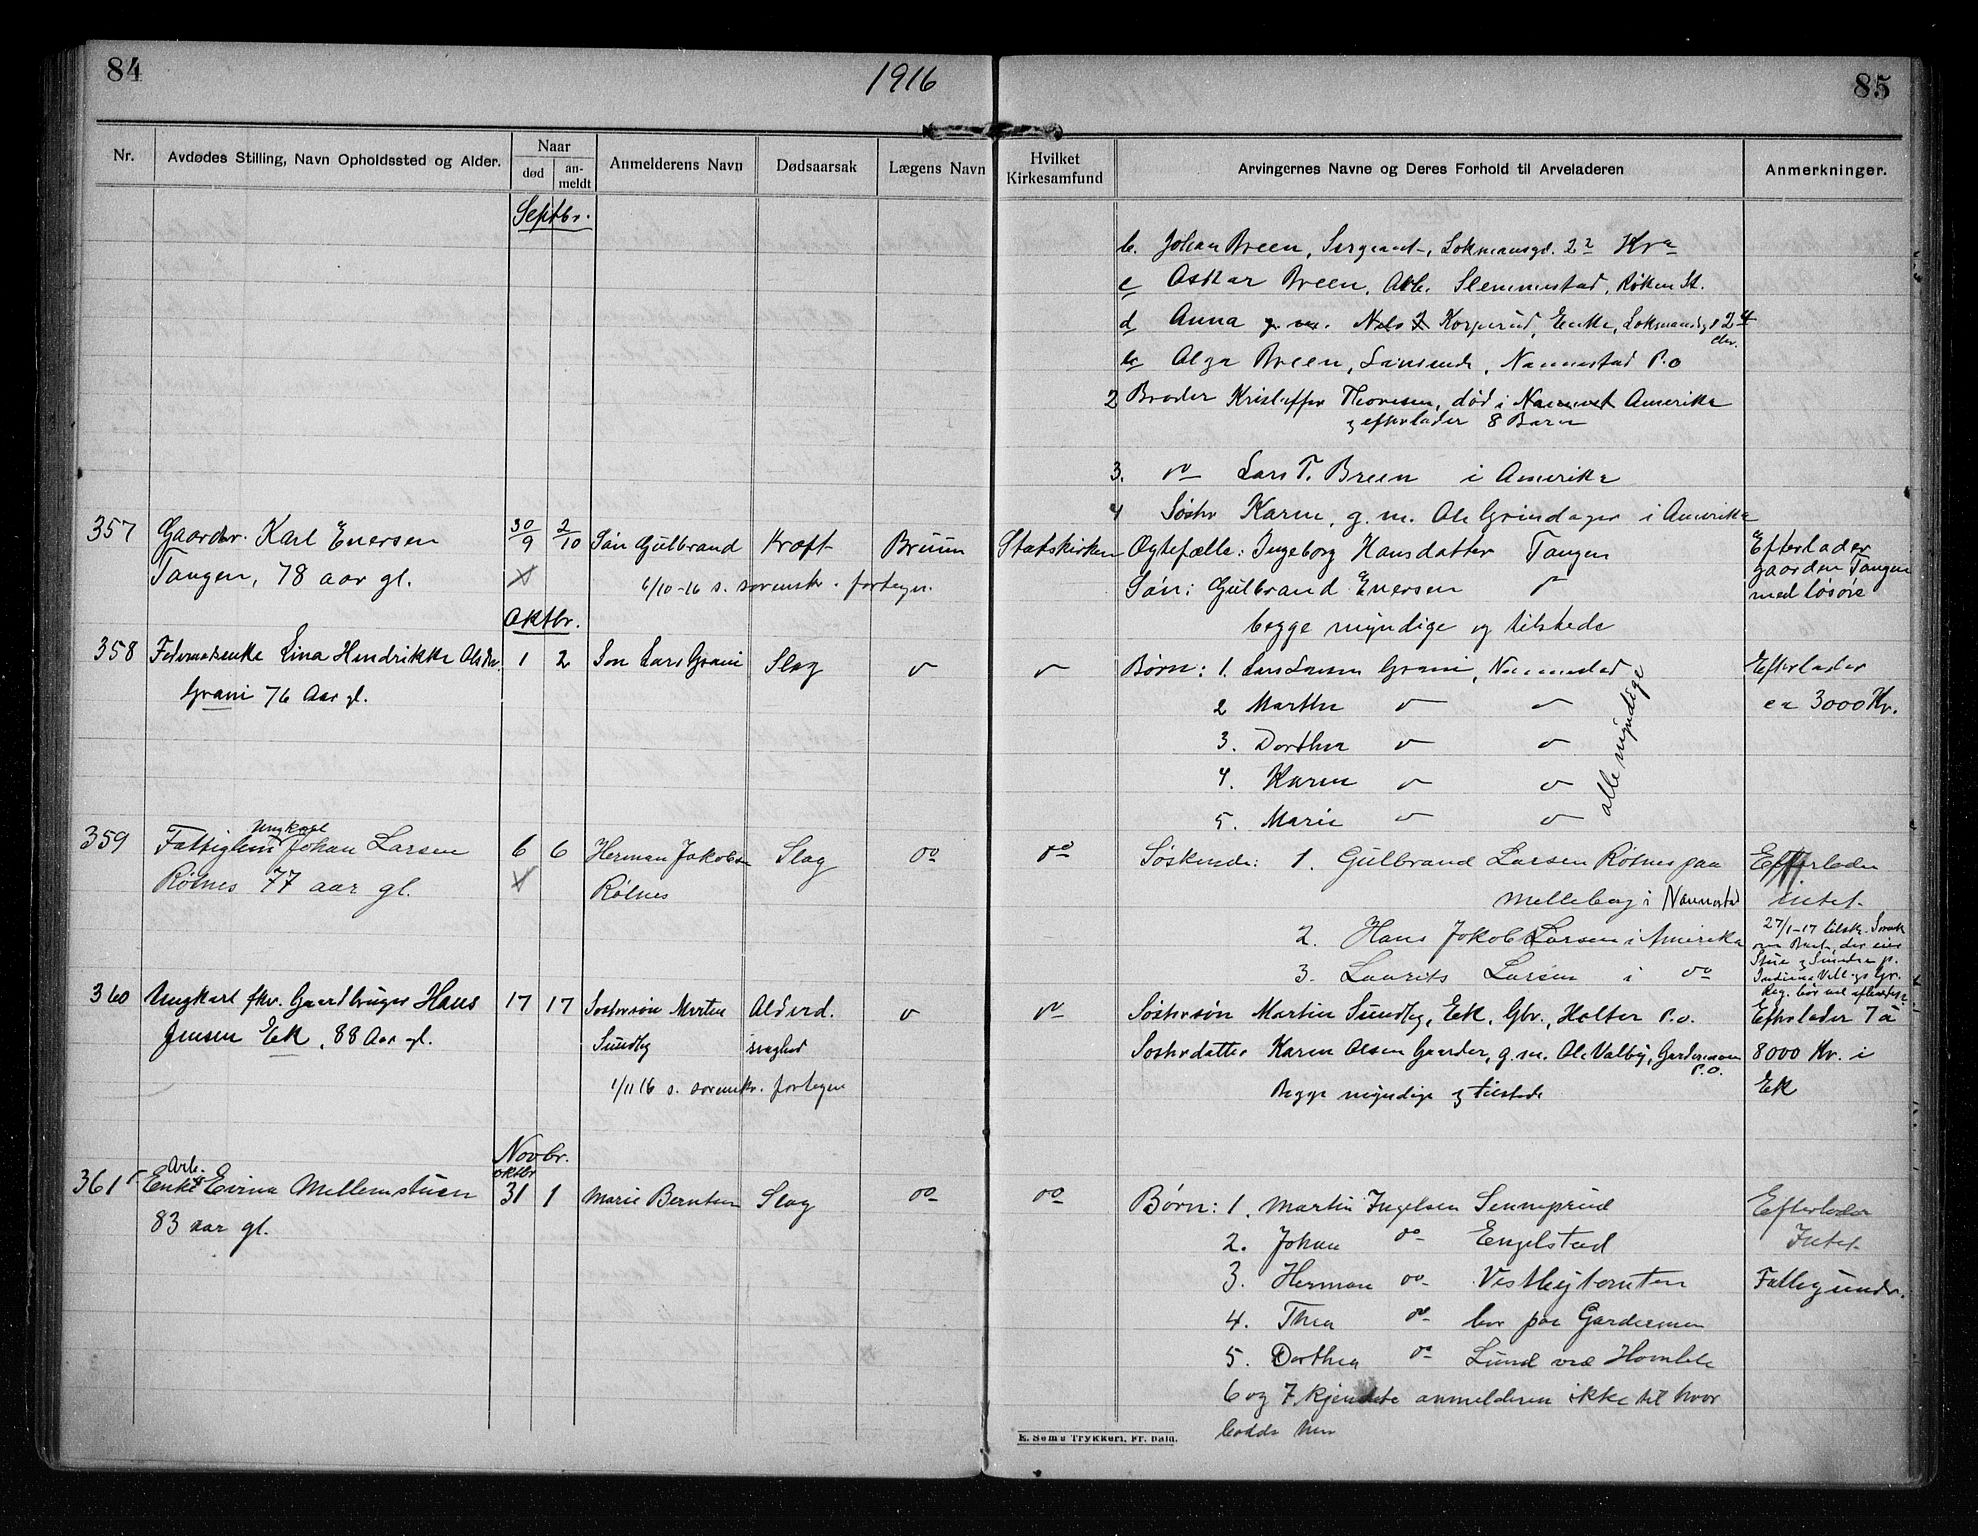 84
1916
85
Nr.
Avdødes Stilling, Navn Opholdssted og Alder.
Naar
død
an-
meldt
Anmelderens Navn
Dødsaarsak
Lægens Navn
Hvilket
Kirkesamfund
Arvingernes Navne og Deres Forhold til Arveladeren
Anmerkninger.
Septbr.
b. Johan Breen, Sergeant, Lokmansgd. 22 Kra
c Oskar Breen, Arb. Slemmestad, Røken St.
d Anna Korperud, Enke, Lokmandsg
e Olga Breen, Nannestad P.o
2 Broder Kristoffer Thoresen, død i Amerika
og efterlader 8 Barn
3. do Lars T. Breen i Amerika
4 Søster Karen, g. m. Ole Grindager i Amerika
357 Gaardbr. Karl Enersen 30/9 2/10 Søn Gulbrand Kræft Bruun Statskirken Ægtefælle: Ingeborg Hansdatter Tangen Efterlader
Tangen, 78 aar gl. 6/10-16 s. sorenskr. fortegn. Søn: Gulbrand Enersen gaarden Tangen
med løsøre
Oktbr. begge myndige og tilstede
358 Lina Hendrikke Olsdtr. 1 2 Søn Lars Grani Slag Børn: 1. Lars Larsen Grani, Nannestad Efterlader
Grani 76 Aar gl. 2 Marthe ca 3000 Kr.
3. Dorthea
4. Karen
5. Marie
alle myndige
Ungkarl
359 Fattiglem Johan Larsen 6 6 Herman Jakobsen Slag do do Søskende: 1. Gulbrand Larsen Rølnes paa Efterlader
Rølnes 77 aar gl. Rølnes Melleberg i Nannestad intet
2. Hans Jakob Larsen i Amerika 27/1-17 tilskr.
3. Laurits Larsen i do
360 Ungkarl fhv. Gaardbruger Hans 17 17 Søstersøn Martin Alderd. do Søstersøn Martin Sundby, Ek, Gbr., Holter P.o. Efterlader 7 à
Jensen Ek, 88 Aar gl. Sundby svaghed Søsterdatter Karen Olsen Gaarder, g. m. Ole Valby, Gardermoen P.O. 8000 Kr. i
1/11 16 s. sorenskr. fortegn Begge myndige og tilstede Ek
Novbr.
oktbr
Arb.
361 Enke Evina Mellemstuen 31 1 Marie Berntsen Slag do do Børn: 1. Martin Ingelsen Sennerud Efterlader
83 aar gl. 2. Johan do Engelstad Intet
3. Herman do Fattigunder.
4. Thea do bor paa Gardermoen
5. Dorthea do Lund ved Homble
6 og 7. kjendte anmelderen ikke til hvor
bodde hen
E. Sem's Trykkeri, Fr. hald.